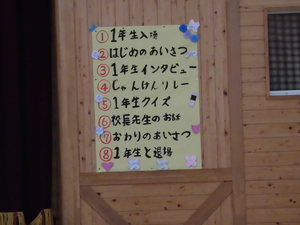 ①1年生入場
②はじめのあいさつ
③1年生インタビュー
④じゃんけんリレー
⑤1年生クイズ
⑥校長先生のお話
⑦おわりのあいさつ
⑧1年生と退場